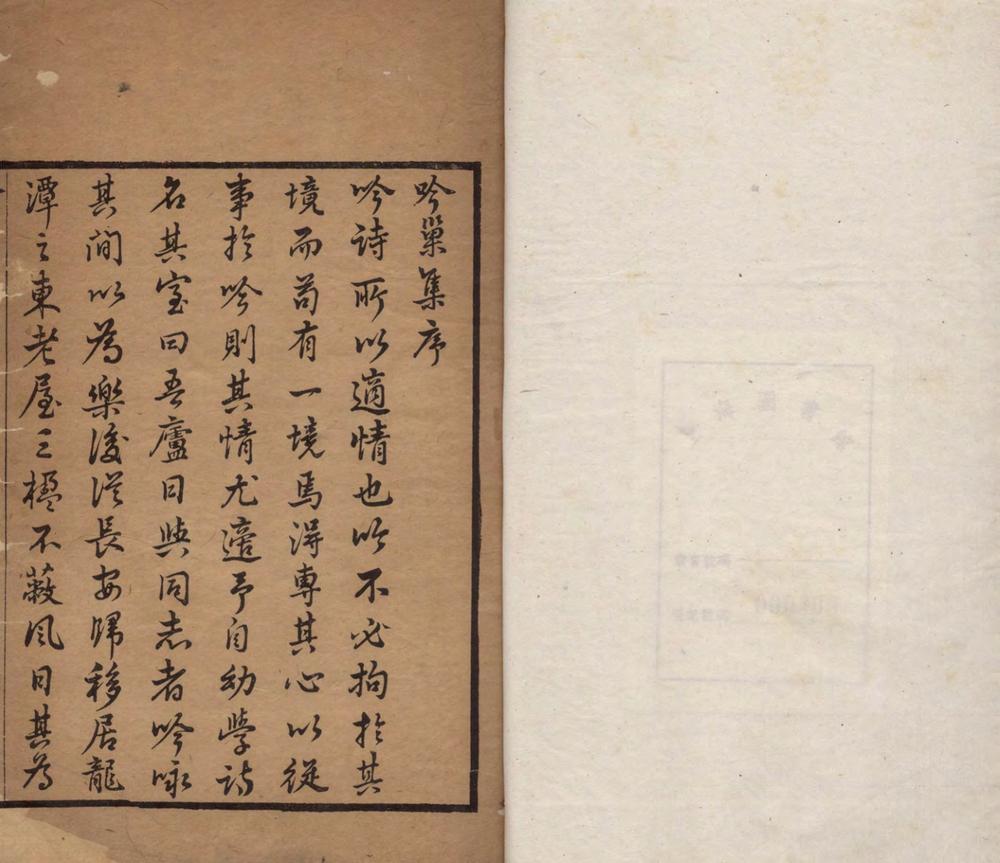 吟巢集序
吟詩所以適情也吟不必拘於其
境而苟有一境焉得專其心以從
事於吟則其情尤適予自幼學詩
名其室曰吾廬日與同志者吟咏
其間以為樂後從長安歸移居龍
潭之東老屋三楹不蔽風日其為